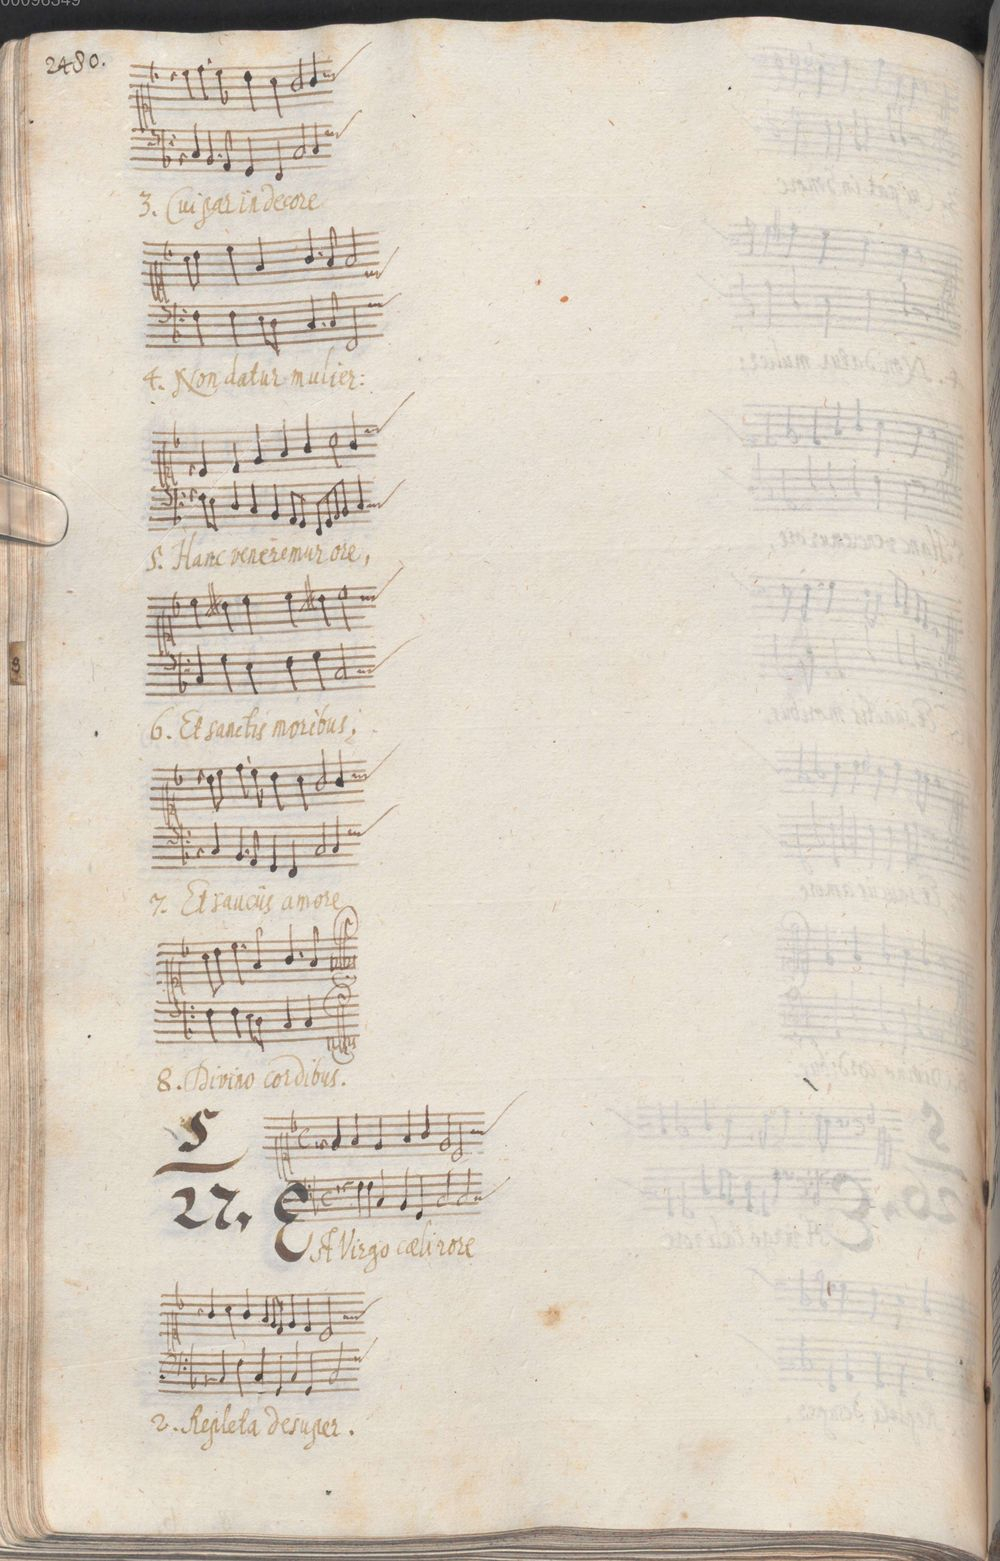 00096349
2480.
3. Cui par in decore
4. Non datur mulier:
5. Hanc veneremur ore,
6. Et sanctis moribus,
7. Et sauciis amore
8. Divino cordibus.
5
27. Est Virgo cœli rore
2. Repleta desuper.